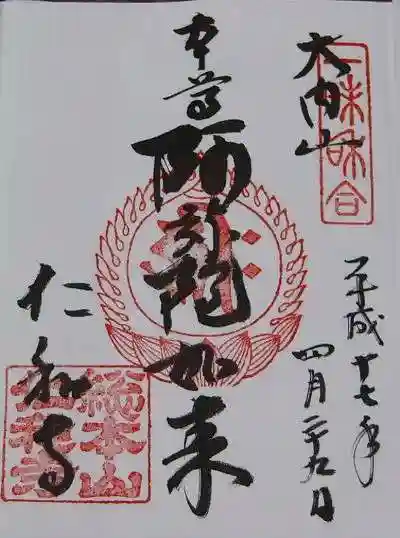 一味和合
大内山
平成十七年
四月二十九日
本尊
阿弥陀如来
仁和寺
総本山
仁和寺